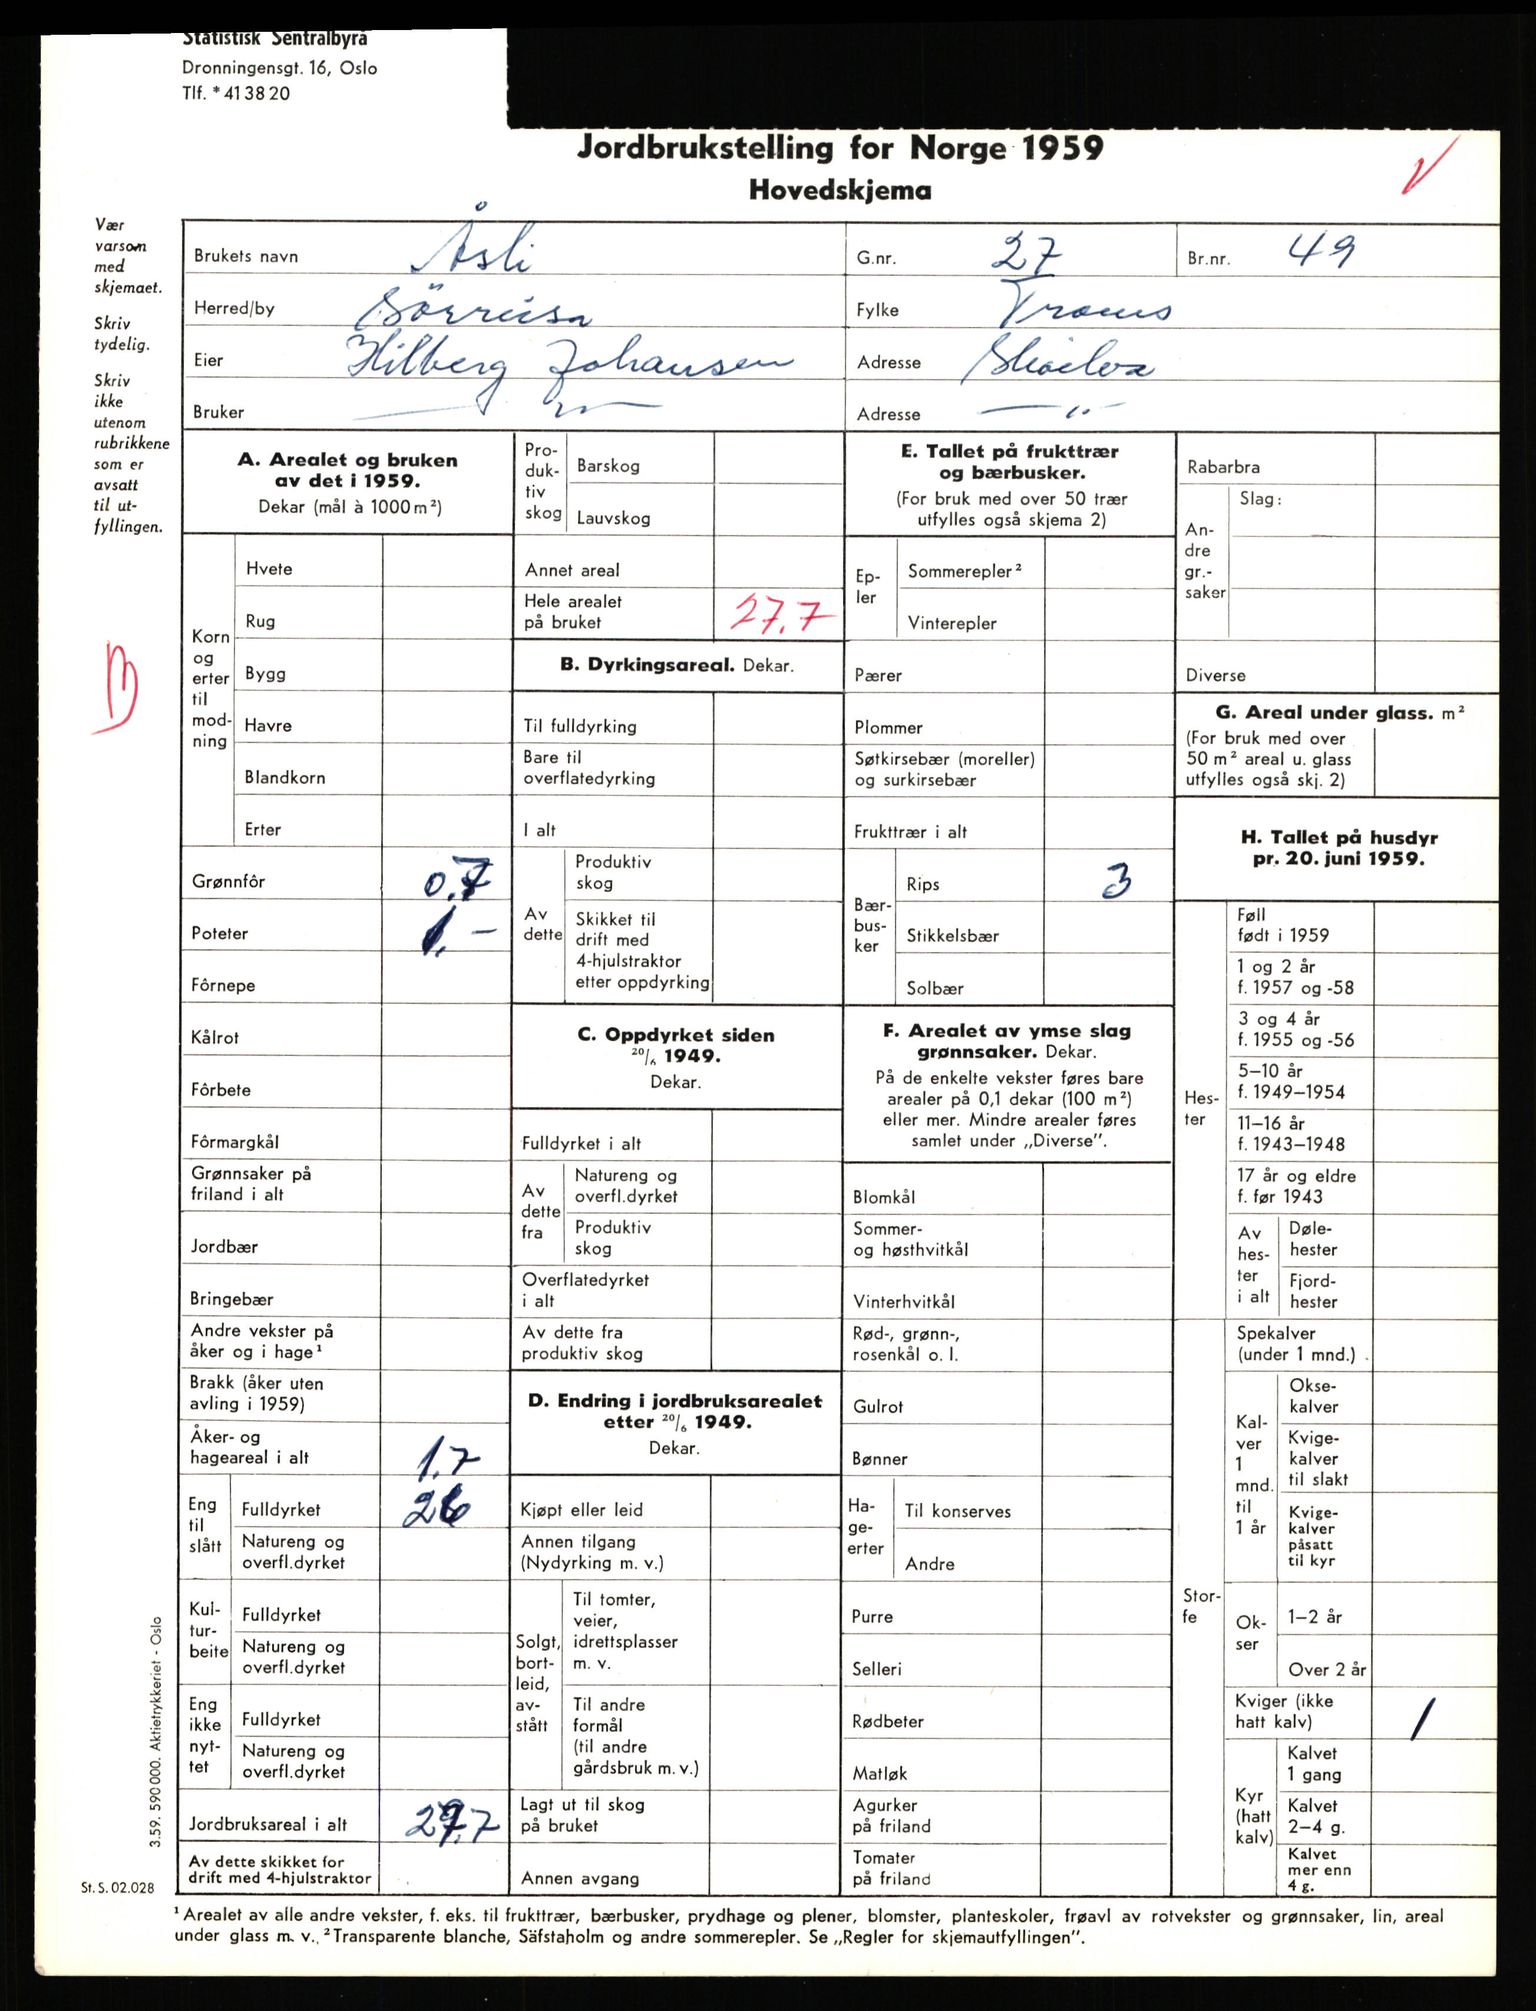 Statistisk Sentralbyrå
Dronningensgt. 16, Oslo
Tlf. * 41 38 20
Jordbrukstelling for Norge 1959
Hovedskjema
Vær
varsom
med
skjemaet.
Skriv
tydelig.
Skriv
ikke
utenom
rubrikkene
som er
avsatt
til ut-
fyllingen.
Brukets navn Åsli G.nr. 27 Br.nr. 49
Herred/by Sörreisa Fylke Troms
Eier Hilberg Johansen Adresse
Bruker — " — Adresse — " —
A. Arealet og bruken
av det i 1959.
Dekar (mål à 1000 m²)
Korn
og
erter
til
mod-
ning
Hvete
Rug
Bygg
Havre
Blandkorn
Erter
Grønnfôr 0.7
Poteter 1.-
Fôrnepe
Kålrot
Fôrbete
Fôrmargkål
Grønnsaker på
friland i alt
Jordbær
Bringebær
Andre vekster på
åker og i hage¹
Brakk (åker uten
avling i 1959)
Åker- og
hageareal i alt 1.7
Eng
til
slått
Fulldyrket 26
Natureng og
overfl.dyrket
Kul-
tur-
beite
Fulldyrket
Natureng og
overfl.dyrket
Eng
ikke
nyt-
tet
Fulldyrket
Natureng og
overfl.dyrket
Jordbruksareal i alt 27.7
Av dette skikket for
drift med 4-hjulstraktor
Pro-
duk-
tiv
skog
Barskog
Lauvskog
Annet areal
Hele arealet
på bruket 27.7
B. Dyrkingsareal. Dekar.
Til fulldyrking
Bare til
overflatedyrking
I alt
Av
dette
Produktiv
skog
Skikket til
drift med
4-hjulstraktor
etter oppdyrking
C. Oppdyrket siden
20/6 1949.
Dekar.
Fulldyrket i alt
Av
dette
fra
Natureng og
overfl.dyrket
Produktiv
skog
Overflatedyrket
i alt
Av dette fra
produktiv skog
D. Endring i jordbruksarealet
etter 20/6 1949.
Dekar.
Kjøpt eller leid
Annen tilgang
(Nydyrking m. v.)
Solgt,
bort-
leid,
av-
stått
Til tomter,
veier,
idrettsplasser
m. v.
Til andre
formål
(til andre
gårdsbruk m. v.)
Lagt ut til skog
på bruket
Annen avgang
E. Tallet på frukttrær
og bærbusker.
(For bruk med over 50 trær
utfylles også skjema 2)
Ep-
ler
Sommerepler²
Vinterepler
Pærer
Plommer
Søtkirsebær (moreller)
og surkirsebær
Frukttrær i alt
Bær-
bus-
ker
Rips 3
Stikkelsbær
Solbær
F. Arealet av ymse slag
grønnsaker. Dekar.
På de enkelte vekster føres bare
arealer på 0,1 dekar (100 m²)
eller mer. Mindre arealer føres
samlet under „Diverse”.
Blomkål
Sommer-
og høsthvitkål
Vinterhvitkål
Rød-, grønn-,
rosenkål o. l.
Gulrot
Bønner
Ha-
ge-
erter
Til konserves
Andre
Purre
Selleri
Rødbeter
Matløk
Agurker
på friland
Tomater
på friland
Rabarbra
An-
dre
gr.-
saker
Slag:
Diverse
G. Areal under glass. m²
(For bruk med over
50 m² areal u. glass
utfylles også skj. 2)
H. Tallet på husdyr
pr. 20. juni 1959.
Hes-
ter
Føll
født i 1959
1 og 2 år
f. 1957 og -58
3 og 4 år
f. 1955 og -56
5–10 år
f. 1949–1954
11–16 år
f. 1943–1948
17 år og eldre
f. før 1943
Av
hes-
ter
i alt
Døle-
hester
Fjord-
hester
Stor-
fe
Spekalver
(under 1 mnd.)
Kal-
ver
1
mnd.
til
1 år
Okse-
kalver
Kvige-
kalver
til slakt
Kvige-
kalver
påsatt
til kyr
Ok-
ser
1–2 år
Over 2 år
Kviger (ikke
hatt kalv) 1
Kyr
(hatt
kalv)
Kalvet
1 gang
Kalvet
2–4 g.
Kalvet
mer enn
4 g.
3.59. 590 000. Aktietrykkeriet - Oslo
St. S. 02.028
¹ Arealet av alle andre vekster, f. eks. til frukttrær, bærbusker, prydhage og plener, blomster, planteskoler, frøavl av rotvekster og grønnsaker, lin, areal
under glass m. v. ² Transparente blanche, Säfstaholm og andre sommerepler. Se „Regler for skjemautfyllingen”.